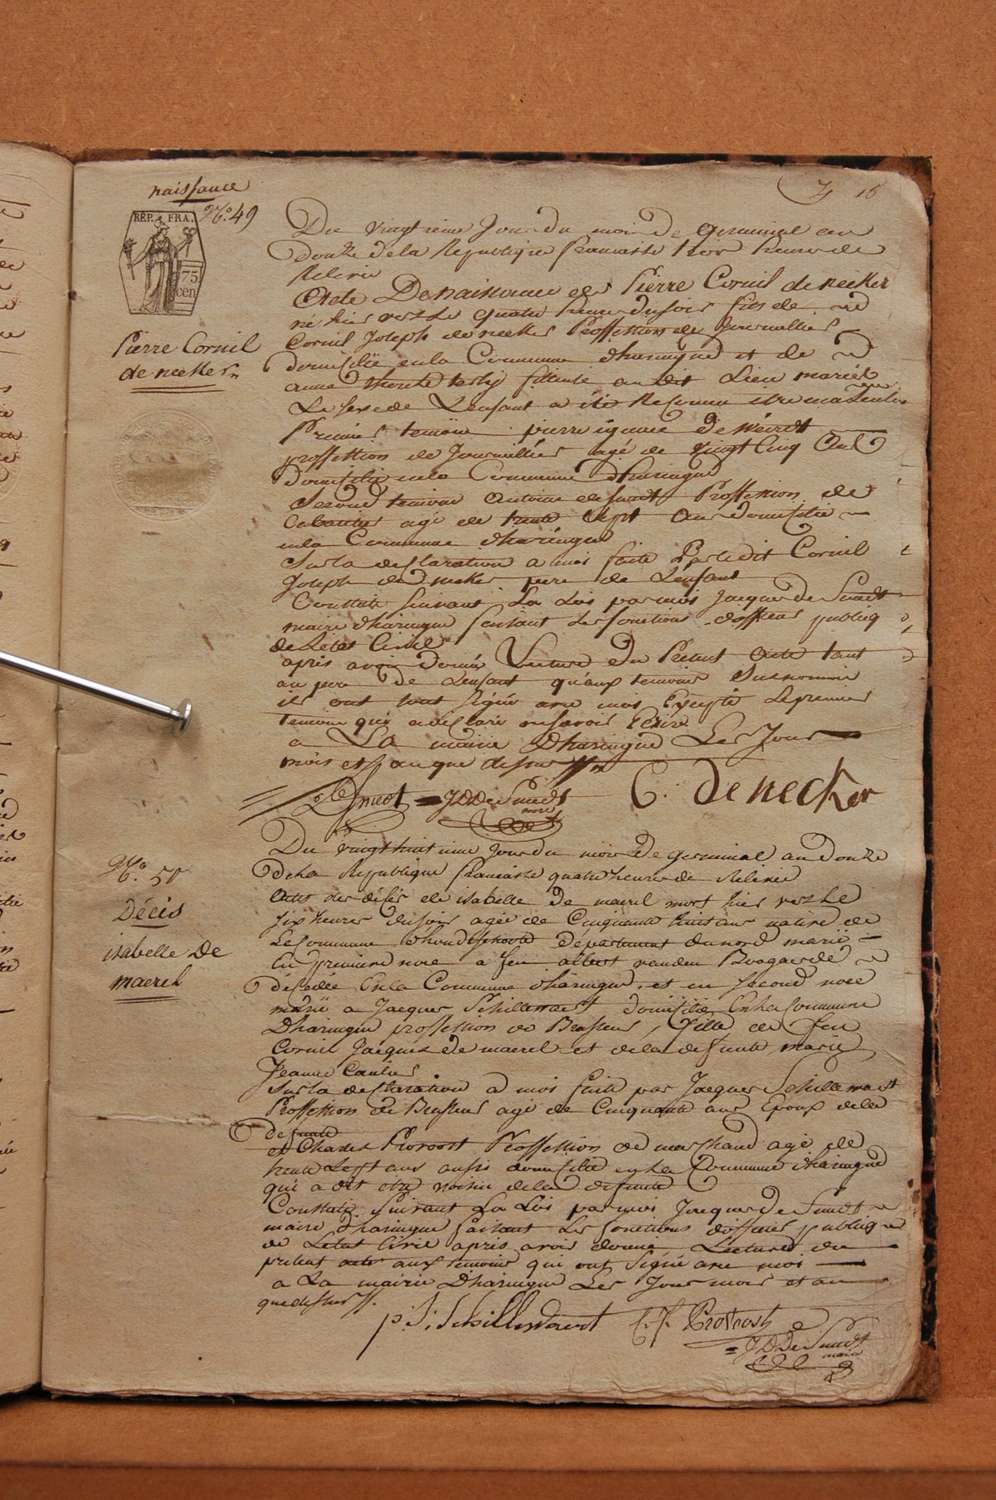 naissance
N.o 49
RÉP. FRA.
75
cen
4 16
Pierre Cornil
de necker
Du vingt jour du mois de germinal an
douze de la République française heure de
Relevée
Acte De naissance de Pierre Cornil de necker
né hier vers les quatre heures du soir fils de
Cornil Joseph de necker Profession de Journallier
domicilié en la Commune dharingue et de
anne au dit Lieu mariés
Le sexe de L'enfant a été Reconnu être masculin
Premier temoin pierre ignace De
proffession de Journallier agé de vingt Cinq Ans
domicilié en la Commune dharingue
Second temoin Antoine Proffession de
Cabartier agé de trente Sept Ans domicilié
en la Commune dharingue
Sur la declaration a moi faite Par le dit Cornil
Joseph de necker pere de L'enfant
Constaté Suivant La Loi par moi Jacques De Smedt
maire dharingue faisant les fonctions dofficier publiq
de Letat Civil
apres avoir donné Lecture du Present Acte tant
au pere de L'enfant qu'aux temoins Susnommé
ils ont tout Signé avec moi Excepté Le premier
temoin qui a declaré ne savoir Ecrire
a La mairie Dharingue Les Jour
mois et an que dessus
J D De Smedt
maire
C. de necker
N.o 50
Décés
isabelle De
maerel
Du vingt huit ieme jour du mois de germinal an douze
de La République française quatre heure de Relevée
Acte des décés de isabelle De maerel mort hier vers Le
six heures du soir agée de Cinquante huit ans native de
Le Commune dhondschoote departement du nord marié
En premiere noce a feu albert vanden Boogaerde
décédée En la Commune dharingue, et en second noce
marié a Jacques Schillewaert domicilié En La Commune
Dharingue proffession de Brasseur, Fille de feu
Cornil Jacques De maerel et de la defunte marie
Jeanne Cautier
Sur la declaration a moi faite par Jacques Schillewaert
Proffession de Brasseur agé de Cinquante ans Epoux de la
defunte
et Charles Provoost Proffession de marchand agé de
trente Sept ans aussi domicilié en La Commune dharingue
qui a dit etre voisin de la defunte
Constaté Suivant La Loi par moi Jacques De Smedt
maire dharingue faisant Les fonctions dofficier publiq
de Letat Civil apres avoir donné Lecture du
present acte aux temoins qui ont Signé avec moi
a La mairie Dharingue Les Jour mois et an
que dessus
p. J. Schillewaert
C. F. Provoost
J D De Smedt
maire